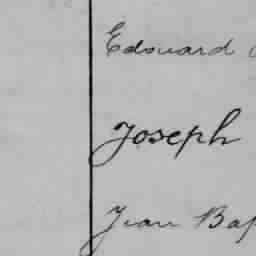 Edouard
Joseph
Jean Bap